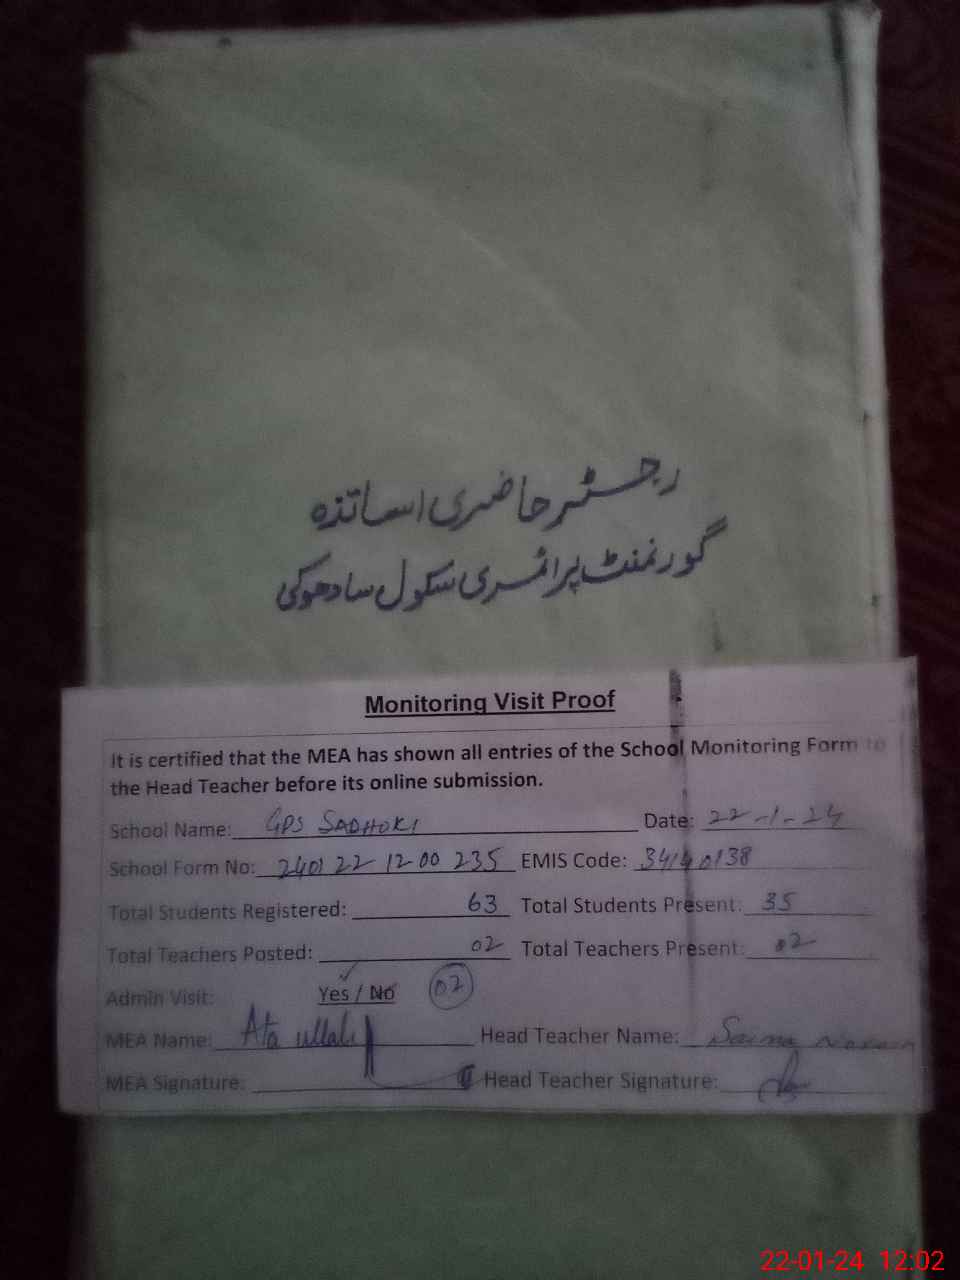 رجسٹر حاضری اساتذہ
گورنمنٹ پرائمری سکول سادھوکی
Monitoring Visit Proof
It is certified that the MEA has shown all entries of the School Monitoring Form to
the Head Teacher before its online submission.
School Name: GPS SADHOKI Date: 22-1-24
School Form No: 2401 22 12 00 235 EMIS Code: 34140138
Total Students Registered: 63 Total Students Present: 35
Total Teachers Posted: 02 Total Teachers Present: 02
Admin Visit: Yes / No 02
MEA Name: Ata ullah Head Teacher Name: Saima
MEA Signature: Head Teacher Signature:
22-01-24 12:02